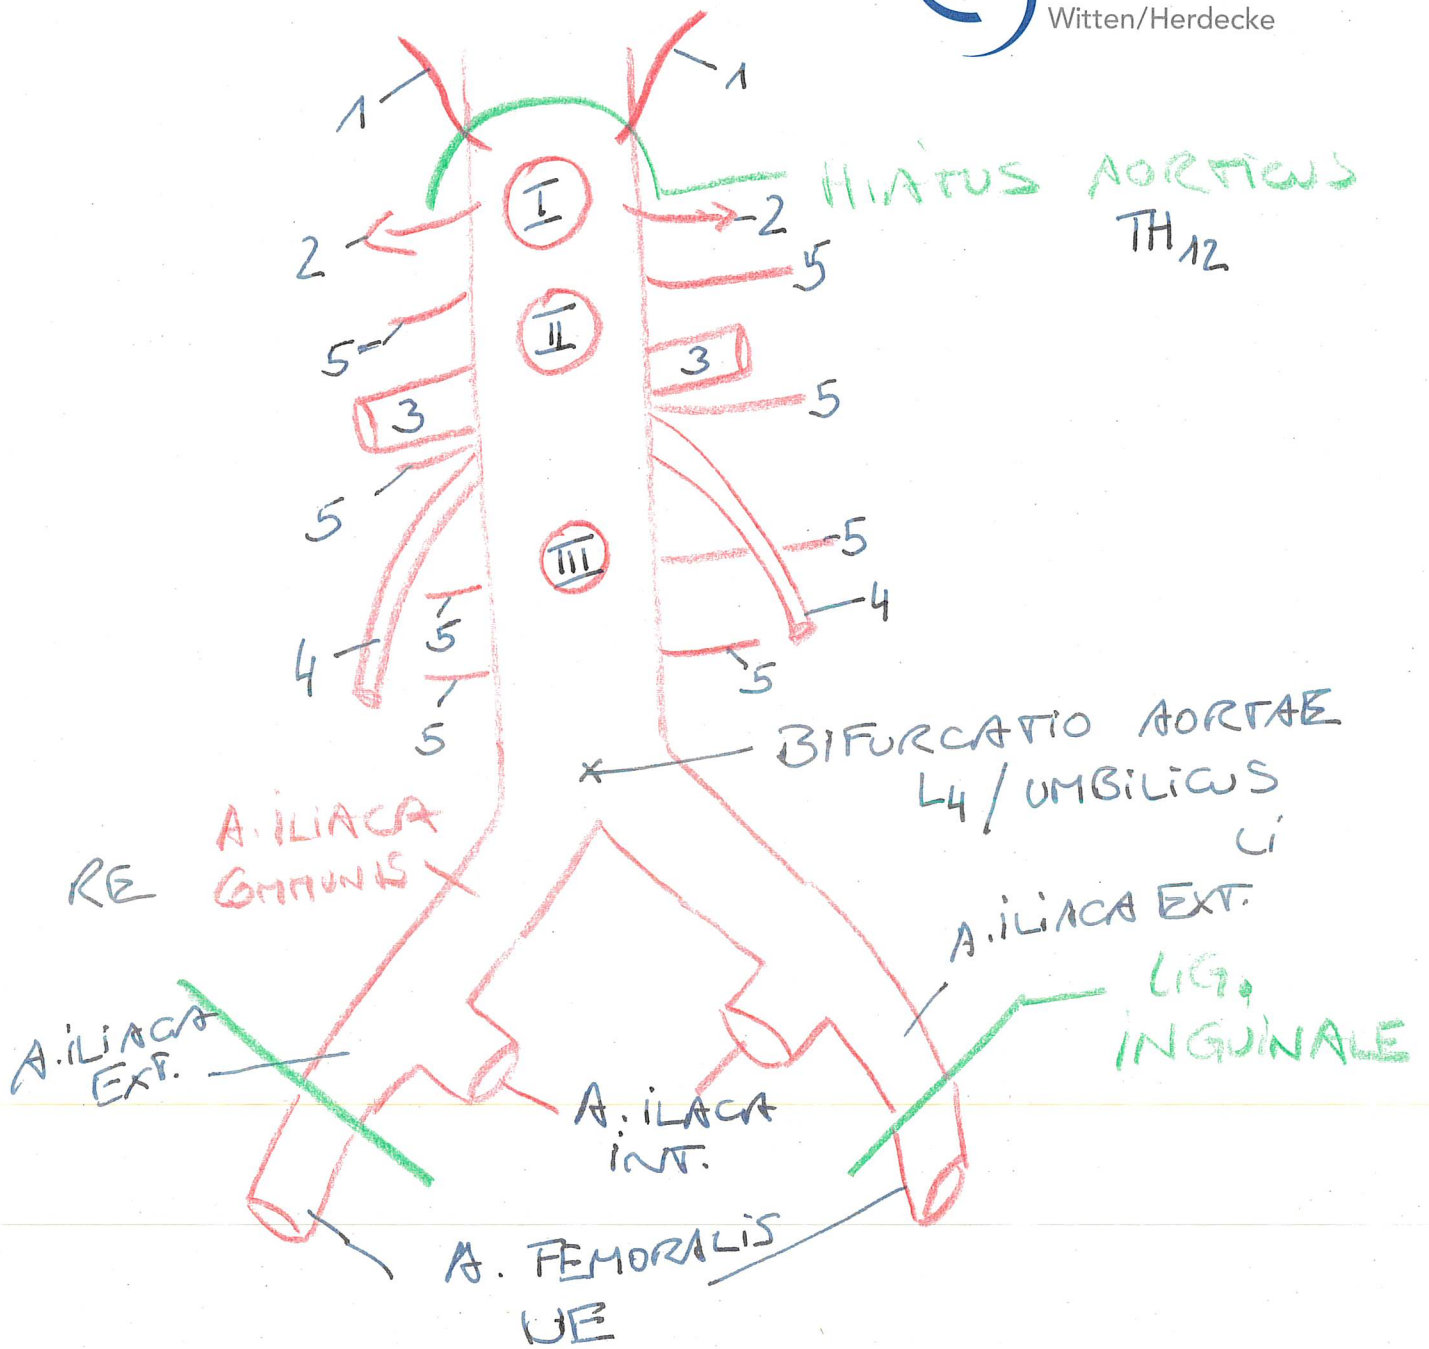 Witten/Herdecke
1
1
HIATUS AORTICUS
TH12
I
2
2
5
II
5
3
5
3
5
III
5
5
4
4
5
5
BIFURCATIO AORTAE
L4/UMBILICUS
LI
A. ILIACA
COMMUNIS
RE
A. ILIACA EXT.
LIG.
INGUINALE
A. ILIACA
EXT.
A. ILACA
INT.
A. FEMORALIS
UE